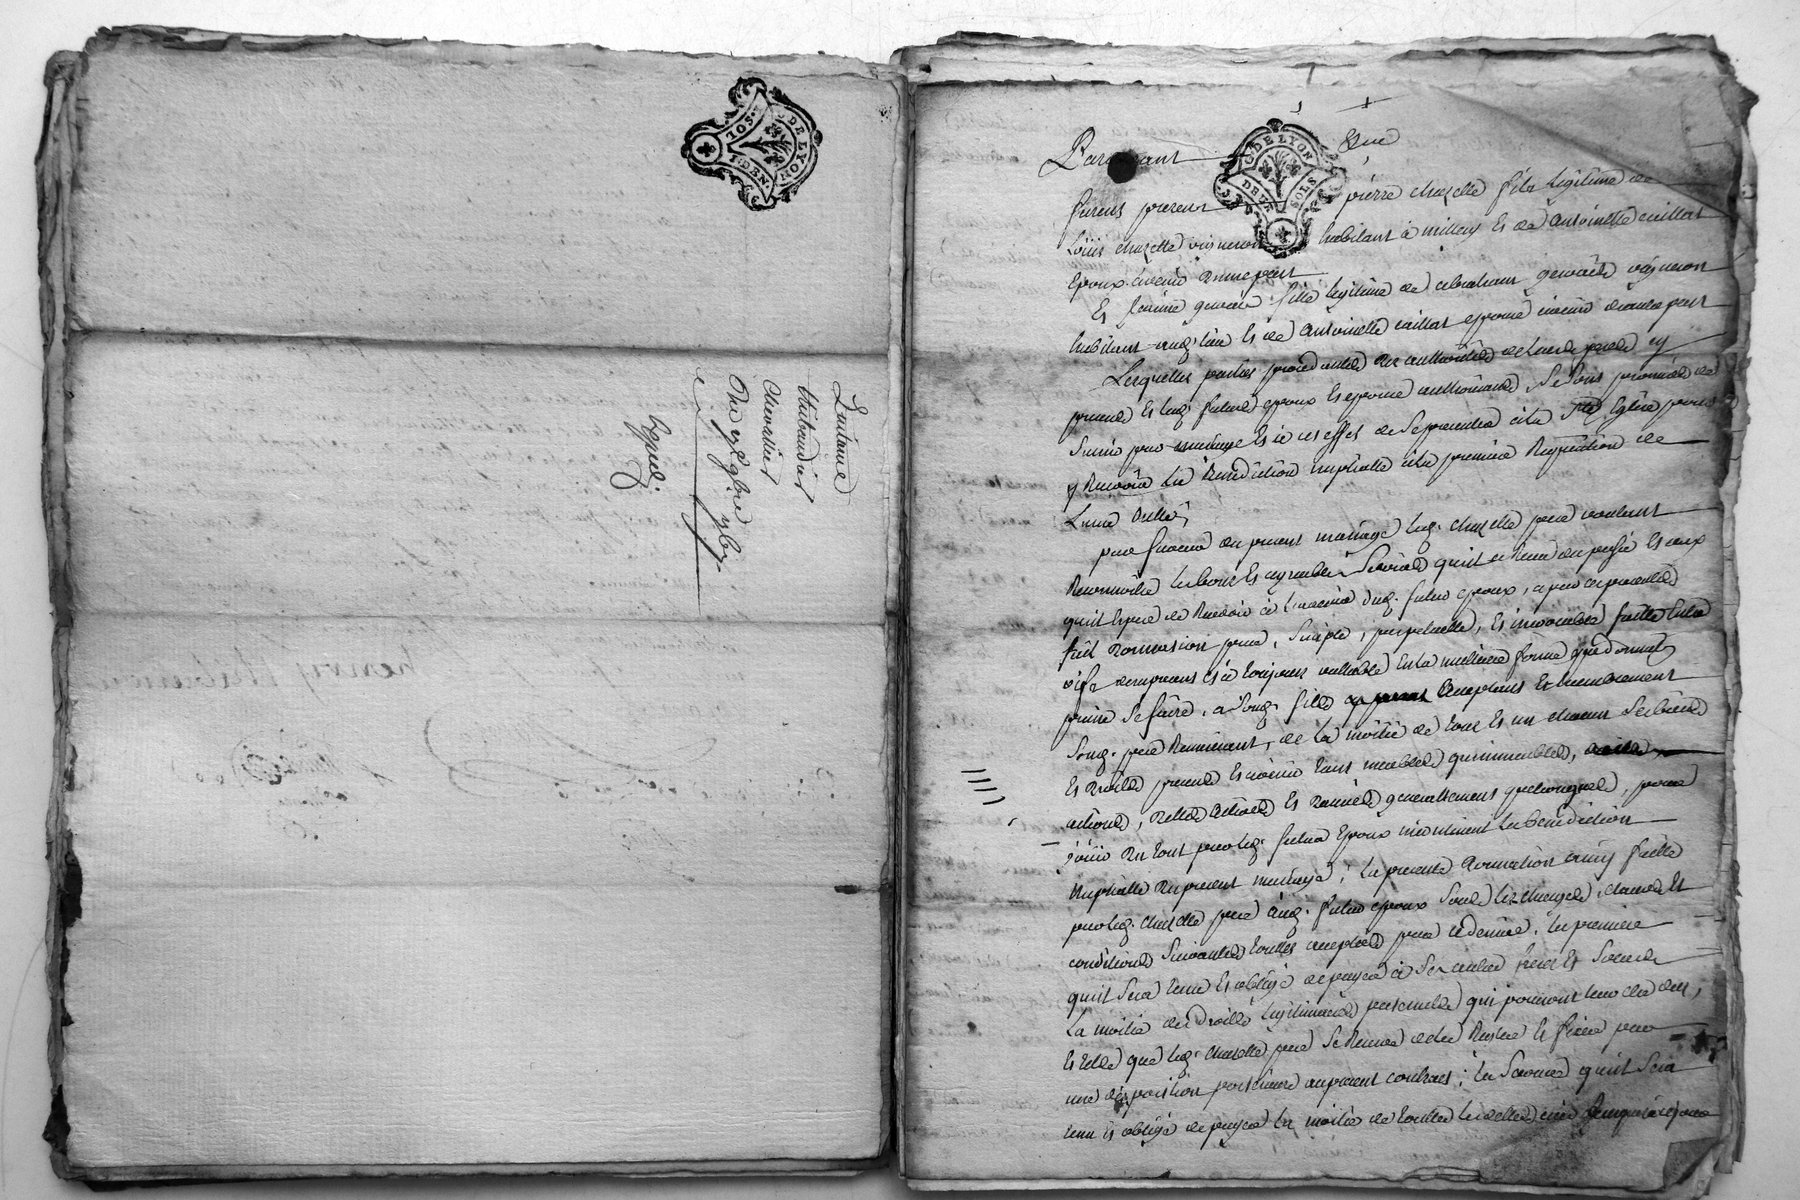 G. DE LYON
SOL
DEN.
Lantome
thibaudier
Chevassier
Expéd.
henry
G. DE LYON
DEUX SOLS
Pardevant
furent presens pierre chuzelle fils legitime de
Louis chuzelle vigneron habitant à millery Et de Antoinette caillot
Epoux avenir d'une part
Et jeanne gervais fille legitime de abraham gervais vigneron
habitant audt lieu Et de Antoinette caillot epouse avenir d'autre part
Lesquelles parties procedantes de l'authorité de leurs peres cy
presens Et lesd. futurs epoux Et epouse authorisés se sont promis de
s'unir par mariage Et à ces effet de se presenter à la Ste Eglise pour
y Recevoir La Benediction nuptialle à la premiere Requisition de
L'une d'elles
pour faveur du present mariage led. chuzelle pere voulant
Reconnoitre les bons Et agreables Services qu'il a Receu du passé Et ceux
qu'il Espere de Recevoir à l'avenir dud. futur epoux, a par ces presentes
fait donnation pure, simple, perpetuelle, Et irrevocable faitte Entre
vifs des presens Et à toujours vallable En la meilleure forme que donnat.
puisse se faire, a sond. fils acceptant Et
sond. pere Remerciant, de La moitié de tous Et un chacun ses biens
Et droits presens Et avenir tant meubles qu'immeubles,
actions, dettes actives Et generallement quelconques, pour
jouir du tout par led. futur Epoux incontinent la benediction
nuptialle du present mariage; la presente donnation ainsy faitte
par led. chuzelle pere aud. futur epoux sous les charges, clauses Et
conditions suivantes touttes acceptées par ce dernier. la premiere
qu'il sera tenu Et obligé de payer à ses autres freres Et soeurs
La moitié des droits legitimaires paternels qui pourront leur être dus,
Et telle que led. chuzelle pere se Reserve de les Regler Et fixer par
une disposition posterieure au present contract; la seconde qu'il sera
tenu Et obligé de payer la moitié de touttes les dettes